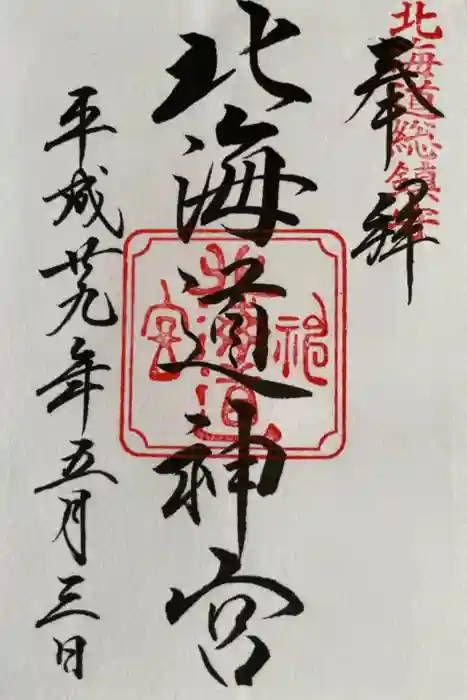 北海道総鎮守
奉拝
北海道神宮
北海道
神
宮
平成廿九年五月三日